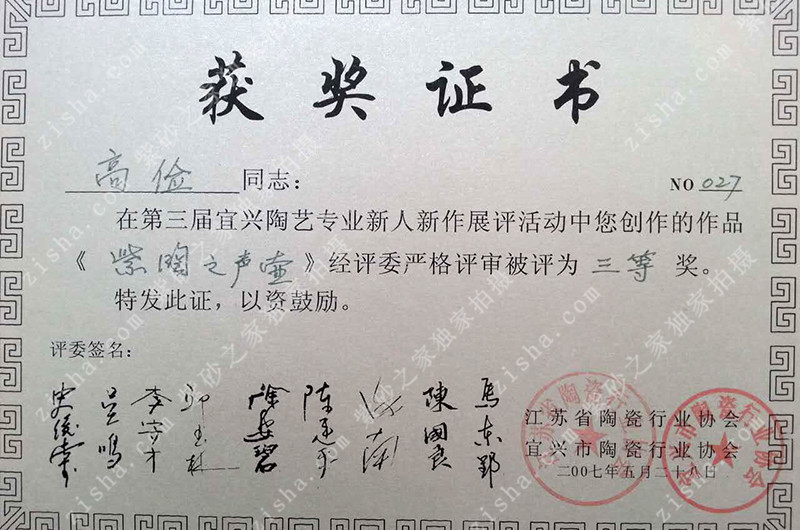 获奖证书
高俭 同志： NO 027
在第三届宜兴陶艺专业新人新作展评活动中您创作的作品
《紫陶之声壶》经评委严格评审被评为三等奖。
特发此证，以资鼓励。
评委签名：
吴鸣 李守才 邱玉林 徐安碧 陈建平 陈国良 马东郢
江苏省陶瓷行业协会
宜兴市陶瓷行业协会
二〇〇七年五月二十八日
紫砂之家独家拍摄
zisha.com